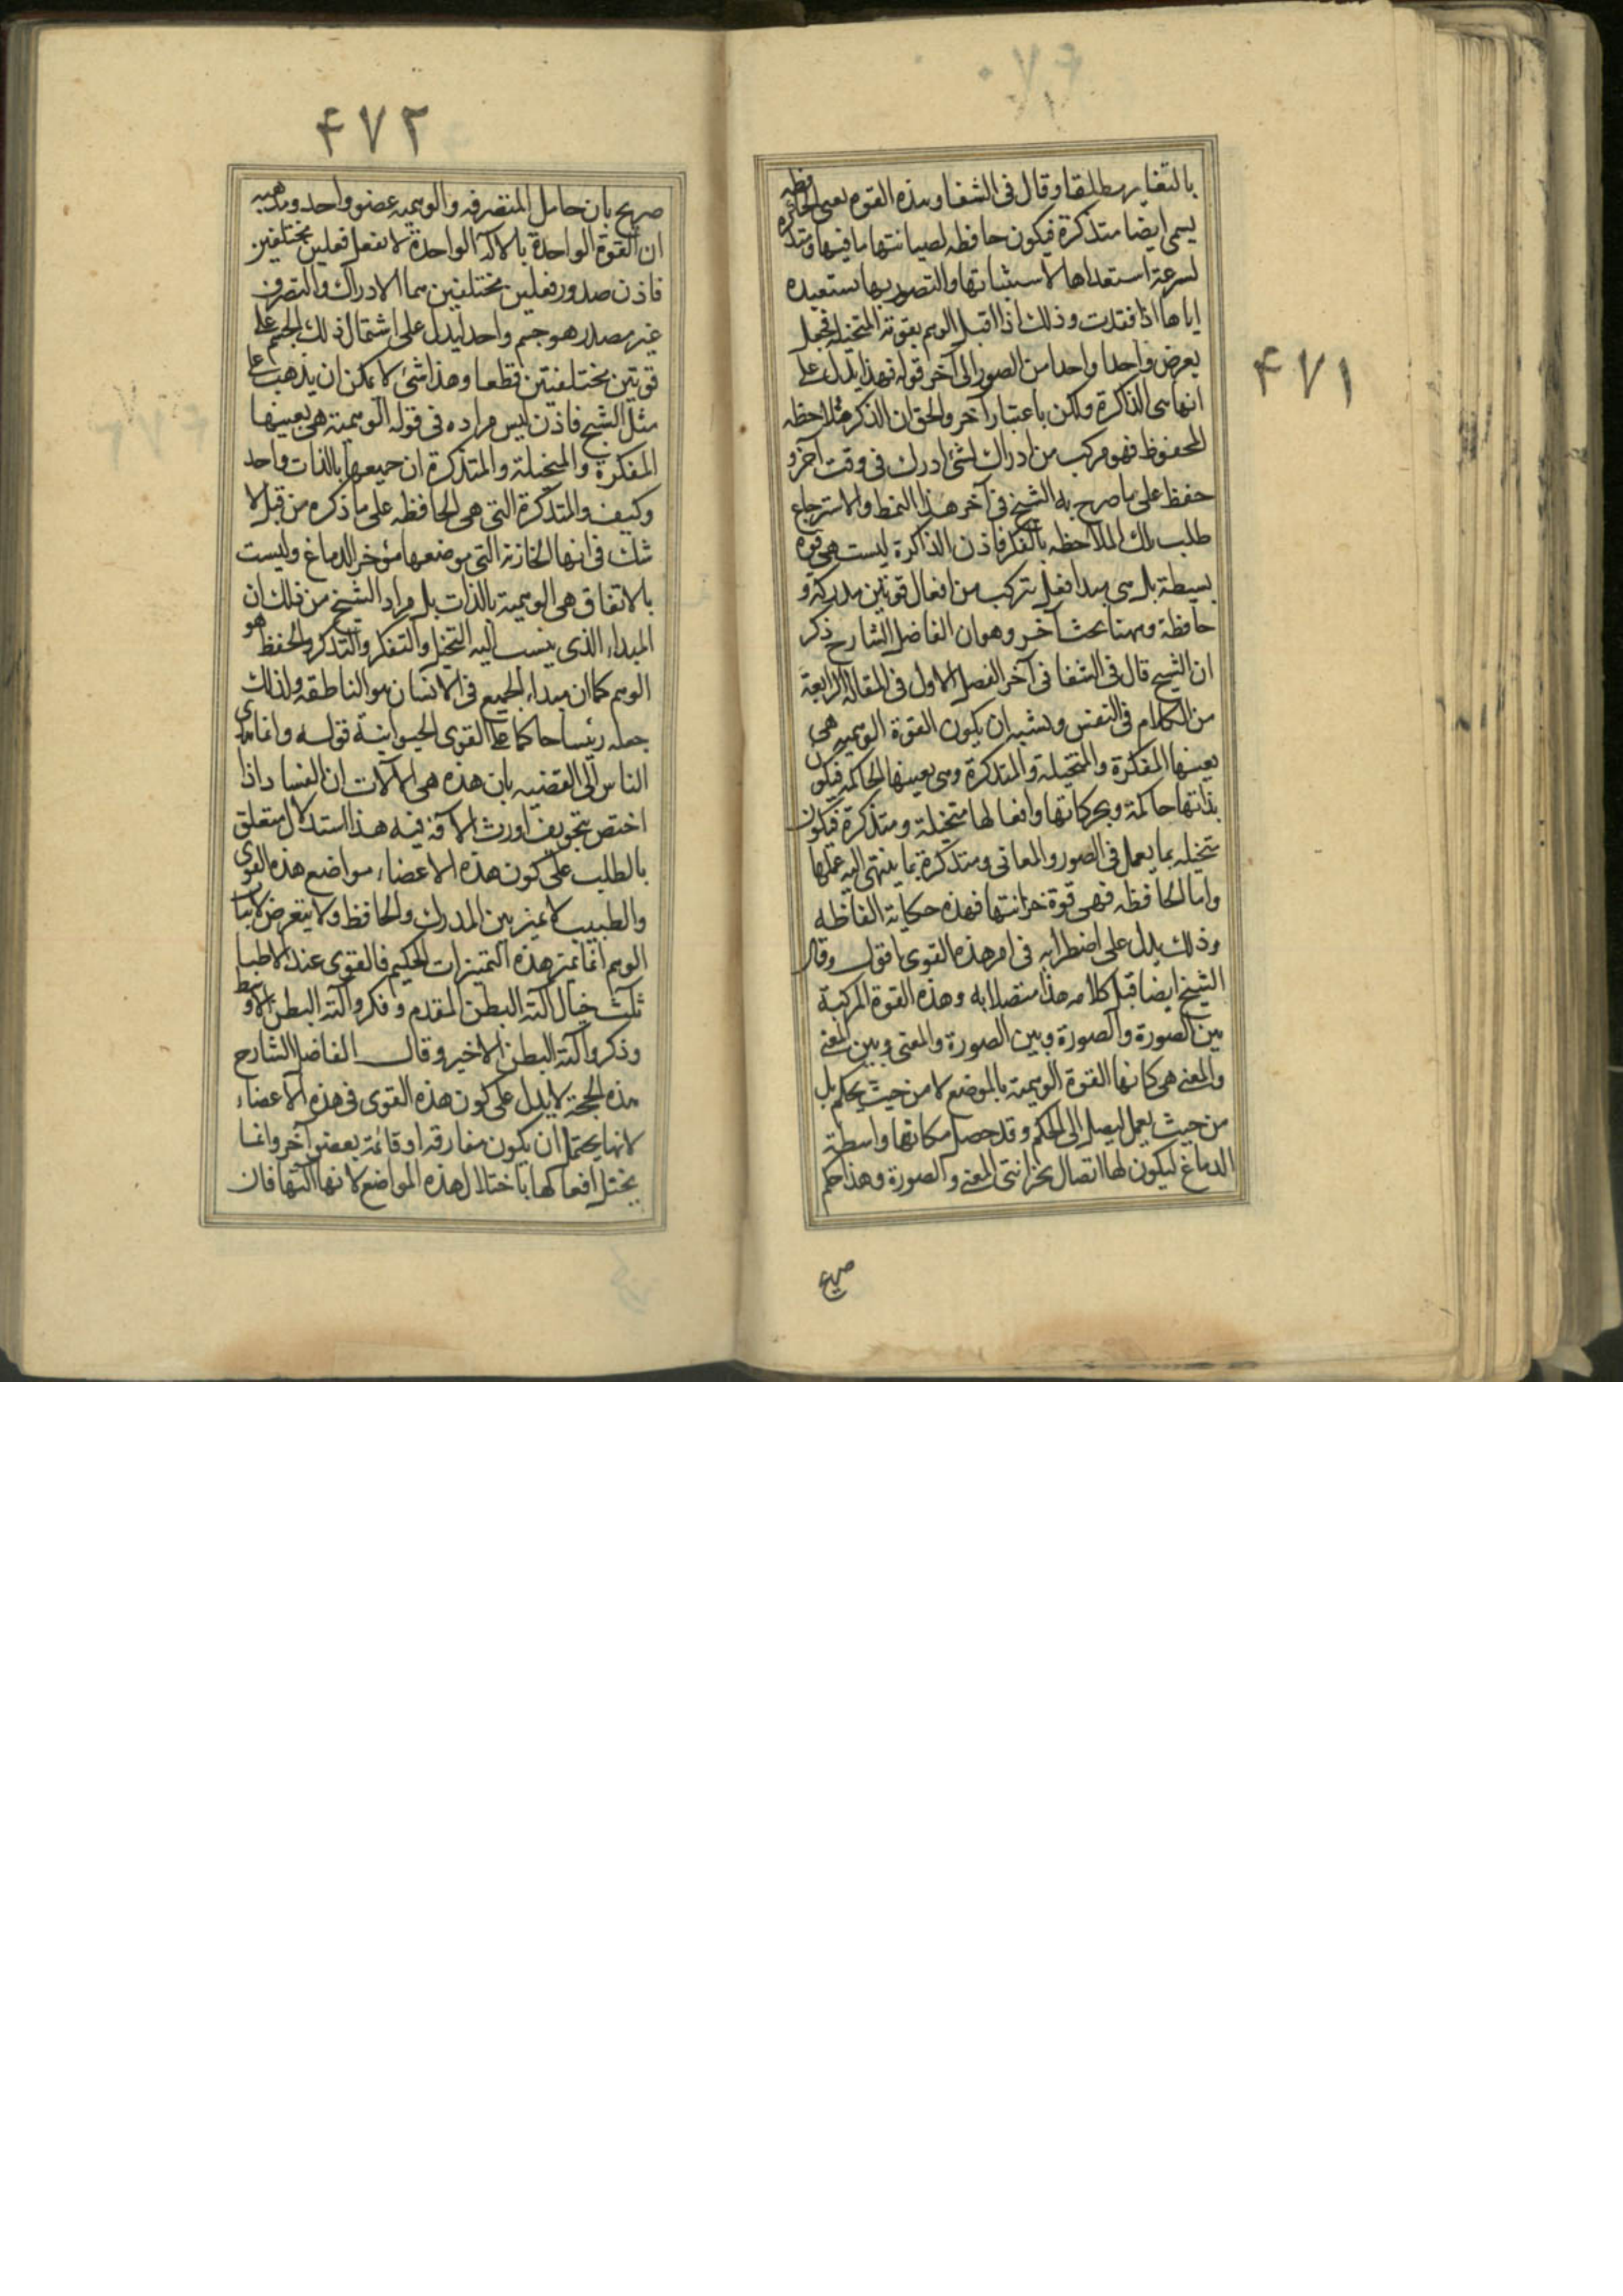 ۴۷۱
بالتغاير مطلقا وقال فى الشفا وهذه القوة يعنى الحافظه
يسمى ايضا متذكرة فيكون حافظه لصيانتها ما فيها ومتذكرة
لسرعة استعدادها لاستثباتها والتصور بها مستعيده
اياها اذا فقدت وذلك اذا اقبل الوهم بقوته المتخيله فجعل
يعرض واحدا واحدا من الصور الى آخر قوله فهذا يدل على
انها هى الذاكرة ولكن باعتبار آخر والحق ان الذكر ملاحظه
المحفوظ فهو مركب من ادراك لشئ ادرك فى وقت آخر و
حفظ على ما صرح به الشيخ فى آخر هذا النمط والاسترجاع
طلب تلك الملاحظه بالفكر فاذن الذاكرة ليست هى قوة
بسيطة بل هى مبدا فعل يتركب من افعال قوتين مدركة و
حافظة وههنا بحث آخر وهو ان الفاضل الشارح ذكر
ان الشيخ قال فى الشفا فى آخر الفصل الاول فى المقاله الرابعة
من الكلام فى النفس ويشبه ان يكون القوة الوهميه هى
بعينها المفكرة والمتخيلة والمتذكرة وهى بعينها الحاكمه فيكون
بذاتها حاكمة وبحركاتها وافعالها متخيلة ومتذكرة فيكون
متخيله بما يعمل فى الصور والمعانى ومتذكرة بما ينتهى اليه عملها
واما الحافظه فهى قوة خزانتها فهذه حكاية الفاظه
وذلك يدل على اضطرابه فى امر هذه القوى اقول وقال
الشيخ ايضا قبل كلامه هذا متصلا به وهذه القوة المركبة
بين الصورة والصورة وبين الصورة والمعنى وبين المعنى
والمعنى هى كانها القوة الوهمية بالموضع لا من حيث يحكم بل
من حيث يعمل ليصل الى الحكم وقد حصل مكانها واسطة
الدماغ ليكون لها اتصال بخزانتى المعنى والصورة وهذا حكم
صريح
۴۷۲
صريح بان حامل المتصرفه والوهميه عضو واحد ومذهبه
ان القوة الواحدة بالآلة الواحدة لا تفعل فعلين مختلفين
فاذن صدور فعلين مختلفين هما الادراك والتصرف
عن مصدر هو جسم واحد ليدل على اشتمال ذلك الجسم على
قوتين مختلفتين قطعا وهذا شئ لا يمكن ان يذهب على
مثل الشيخ فاذن ليس مراده فى قوله الوهمية هى بعينها
المفكرة والمتخيلة والمتذكرة ان جميعها بالذات واحد
وكيف والمتذكرة التى هى الحافظه على ما ذكره من قبل لا
شك فى انها الخازنة التى موضعها مؤخر الدماغ وليست
بالاتفاق هى الوهمية بالذات بل مراد الشيخ من ذلك ان
المبداء الذى ينسب اليه التخيل والتفكر والتذكر والحفظ هو
الوهم كما ان مبداء الجميع فى الانسان هو الناطقه ولذلك
جعله رئيسا حاكما على القوى الحيوانية قوله وانما هدى
الناس الى القضيه بان هذه هى الآلات ان الفساد اذا
اختص بتجويف اورث الآفة فيه هذا استدلال متعلق
بالطب على كون هذه الاعضاء مواضع هذه القوى
والطبيب لا يميز بين المدرك والحافظ ولا يتعرض لاثبات
الوهم انما يميز هذه التميزات الحكيم فالقوى عند الاطبا
ثلث خيال آلته البطن المقدم وفكر وآلته البطن الاوسط
وذكر وآلته البطن الاخير وقال الفاضل الشارح
هذه الحجة لا يدل على كون هذه القوى فى هذه الاعضاء
لانها يحتمل ان يكون مفارقة او قائمة بعضو آخر وانما
يختل افعالها باختلال هذه المواضع لانها آلاتها فان